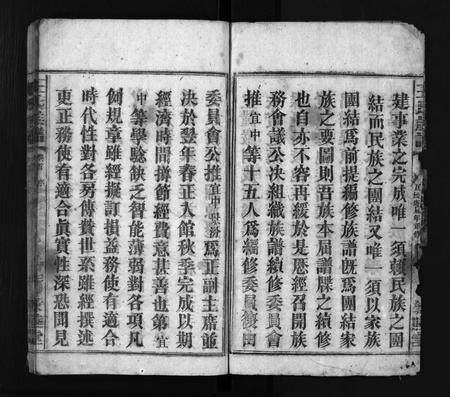 建事業之完成唯一須賴民族之團
結而民族之團結又唯一須以家族
團結為前提編修族譜既為團結家
族之要圖則吾族本屆譜牒之續修
也自亦不容再緩於是恩經召開族
務會議公决組織族譜續修委員會
推宜中等十五人為編修委員復由
委員會公推宜中為正副主席並
决於翌年春正入館秋季完成以期
經濟時間撙節經費意甚善也第宜
中等學騐缺乏智能薄弱對各項凡
例規章雖經擬訂損益務使有適合
時代性對各房傳贊世系雖經撰述
更正務使有適合眞實性深恐聞見